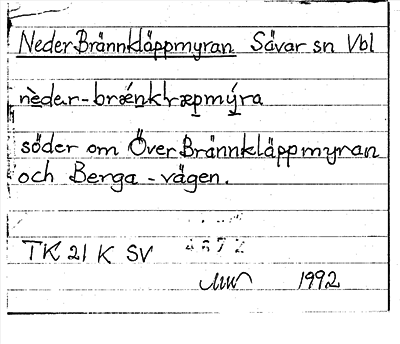 NederBrännkläppmyran Sävar sn Vbl
nèdar-brǽnkɫæpmýra
söder om ÖverBrännkläppmyran
och Berga-vägen.
TK 21 K SV
1992